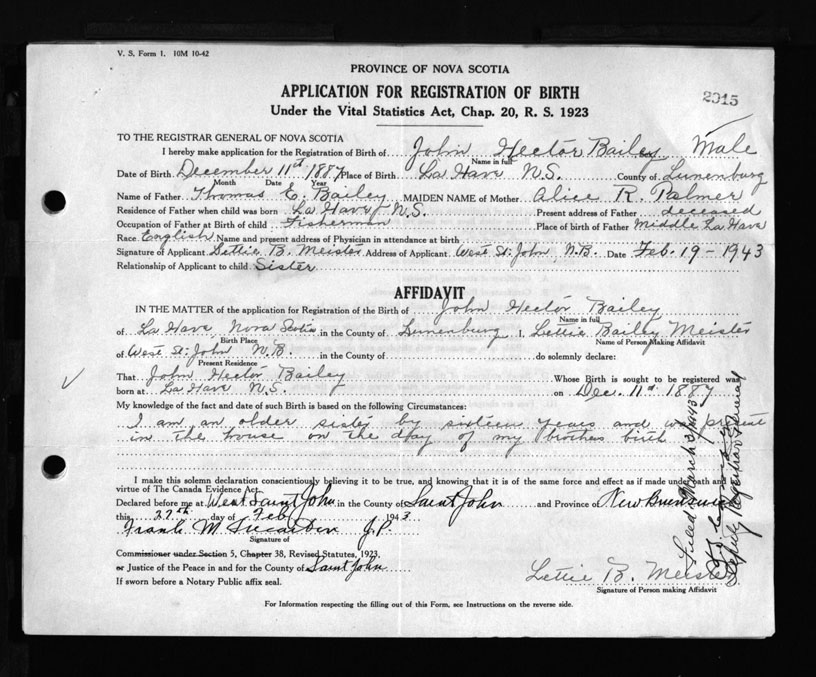 V. S. Form 1. 10M 10-42
PROVINCE OF NOVA SCOTIA
APPLICATION FOR REGISTRATION OF BIRTH
Under the Vital Statistics Act, Chap. 20, R. S. 1923
2915
TO THE REGISTRAR GENERAL OF NOVA SCOTIA
I hereby make application for the Registration of Birth of John Hector Bailey Male
Name in full
Date of Birth December 11st 1887 Place of Birth La Have N.S. County of Lunenburg
Month Date Year
Name of Father Thomas E. Bailey MAIDEN NAME of Mother Alice R. Palmer
Residence of Father when child was born La Have N.S. Present address of Father deceasid
Occupation of Father at Birth of child Fisherman Place of birth of Father Middle La Have
Race English Name and present address of Physician in attendance at birth
Signature of Applicant Lettie B. Meister Address of Applicant West St. John N.B. Date Feb. 19 - 1943
Relationship of Applicant to child Sister
AFFIDAVIT
IN THE MATTER of the application for Registration of the Birth of John Hector Bailey
Name in full
of La Have Nova Scotia in the County of Lunenburg I, Lettie Bailey Meister
Birth Place Name of Person Making Affidavit
of West St. John N.B. in the County of do solemnly declare:
Present Residence
That John Hector Bailey Whose Birth is sought to be registered was
born at La Have N.S. on Dec. 11d 1887
My knowledge of the fact and date of such Birth is based on the following Circumstances:
I am an older sister by sixteen years and was present
in the house on the day of my brothers birth
I make this solemn declaration conscientiously believing it to be true, and knowing that it is of the same force and effect as if made under oath and by
virtue of The Canada Evidence Act.
Declared before me at West Saint John in the County of Saint John and Province of New Brunswick
this 27th day of Feb 1943
Frank M J.P.
Signature of
Commissioner under Section 5, Chapter 38, Revised Statutes, 1923,
or Justice of the Peace in and for the County of Saint John
If sworn before a Notary Public affix seal.
Lettie B. Meister
Signature of Person making Affidavit
For Information respecting the filling out of this Form, see Instructions on the reverse side.
Filed March 3/1943
Deputy Registrar General